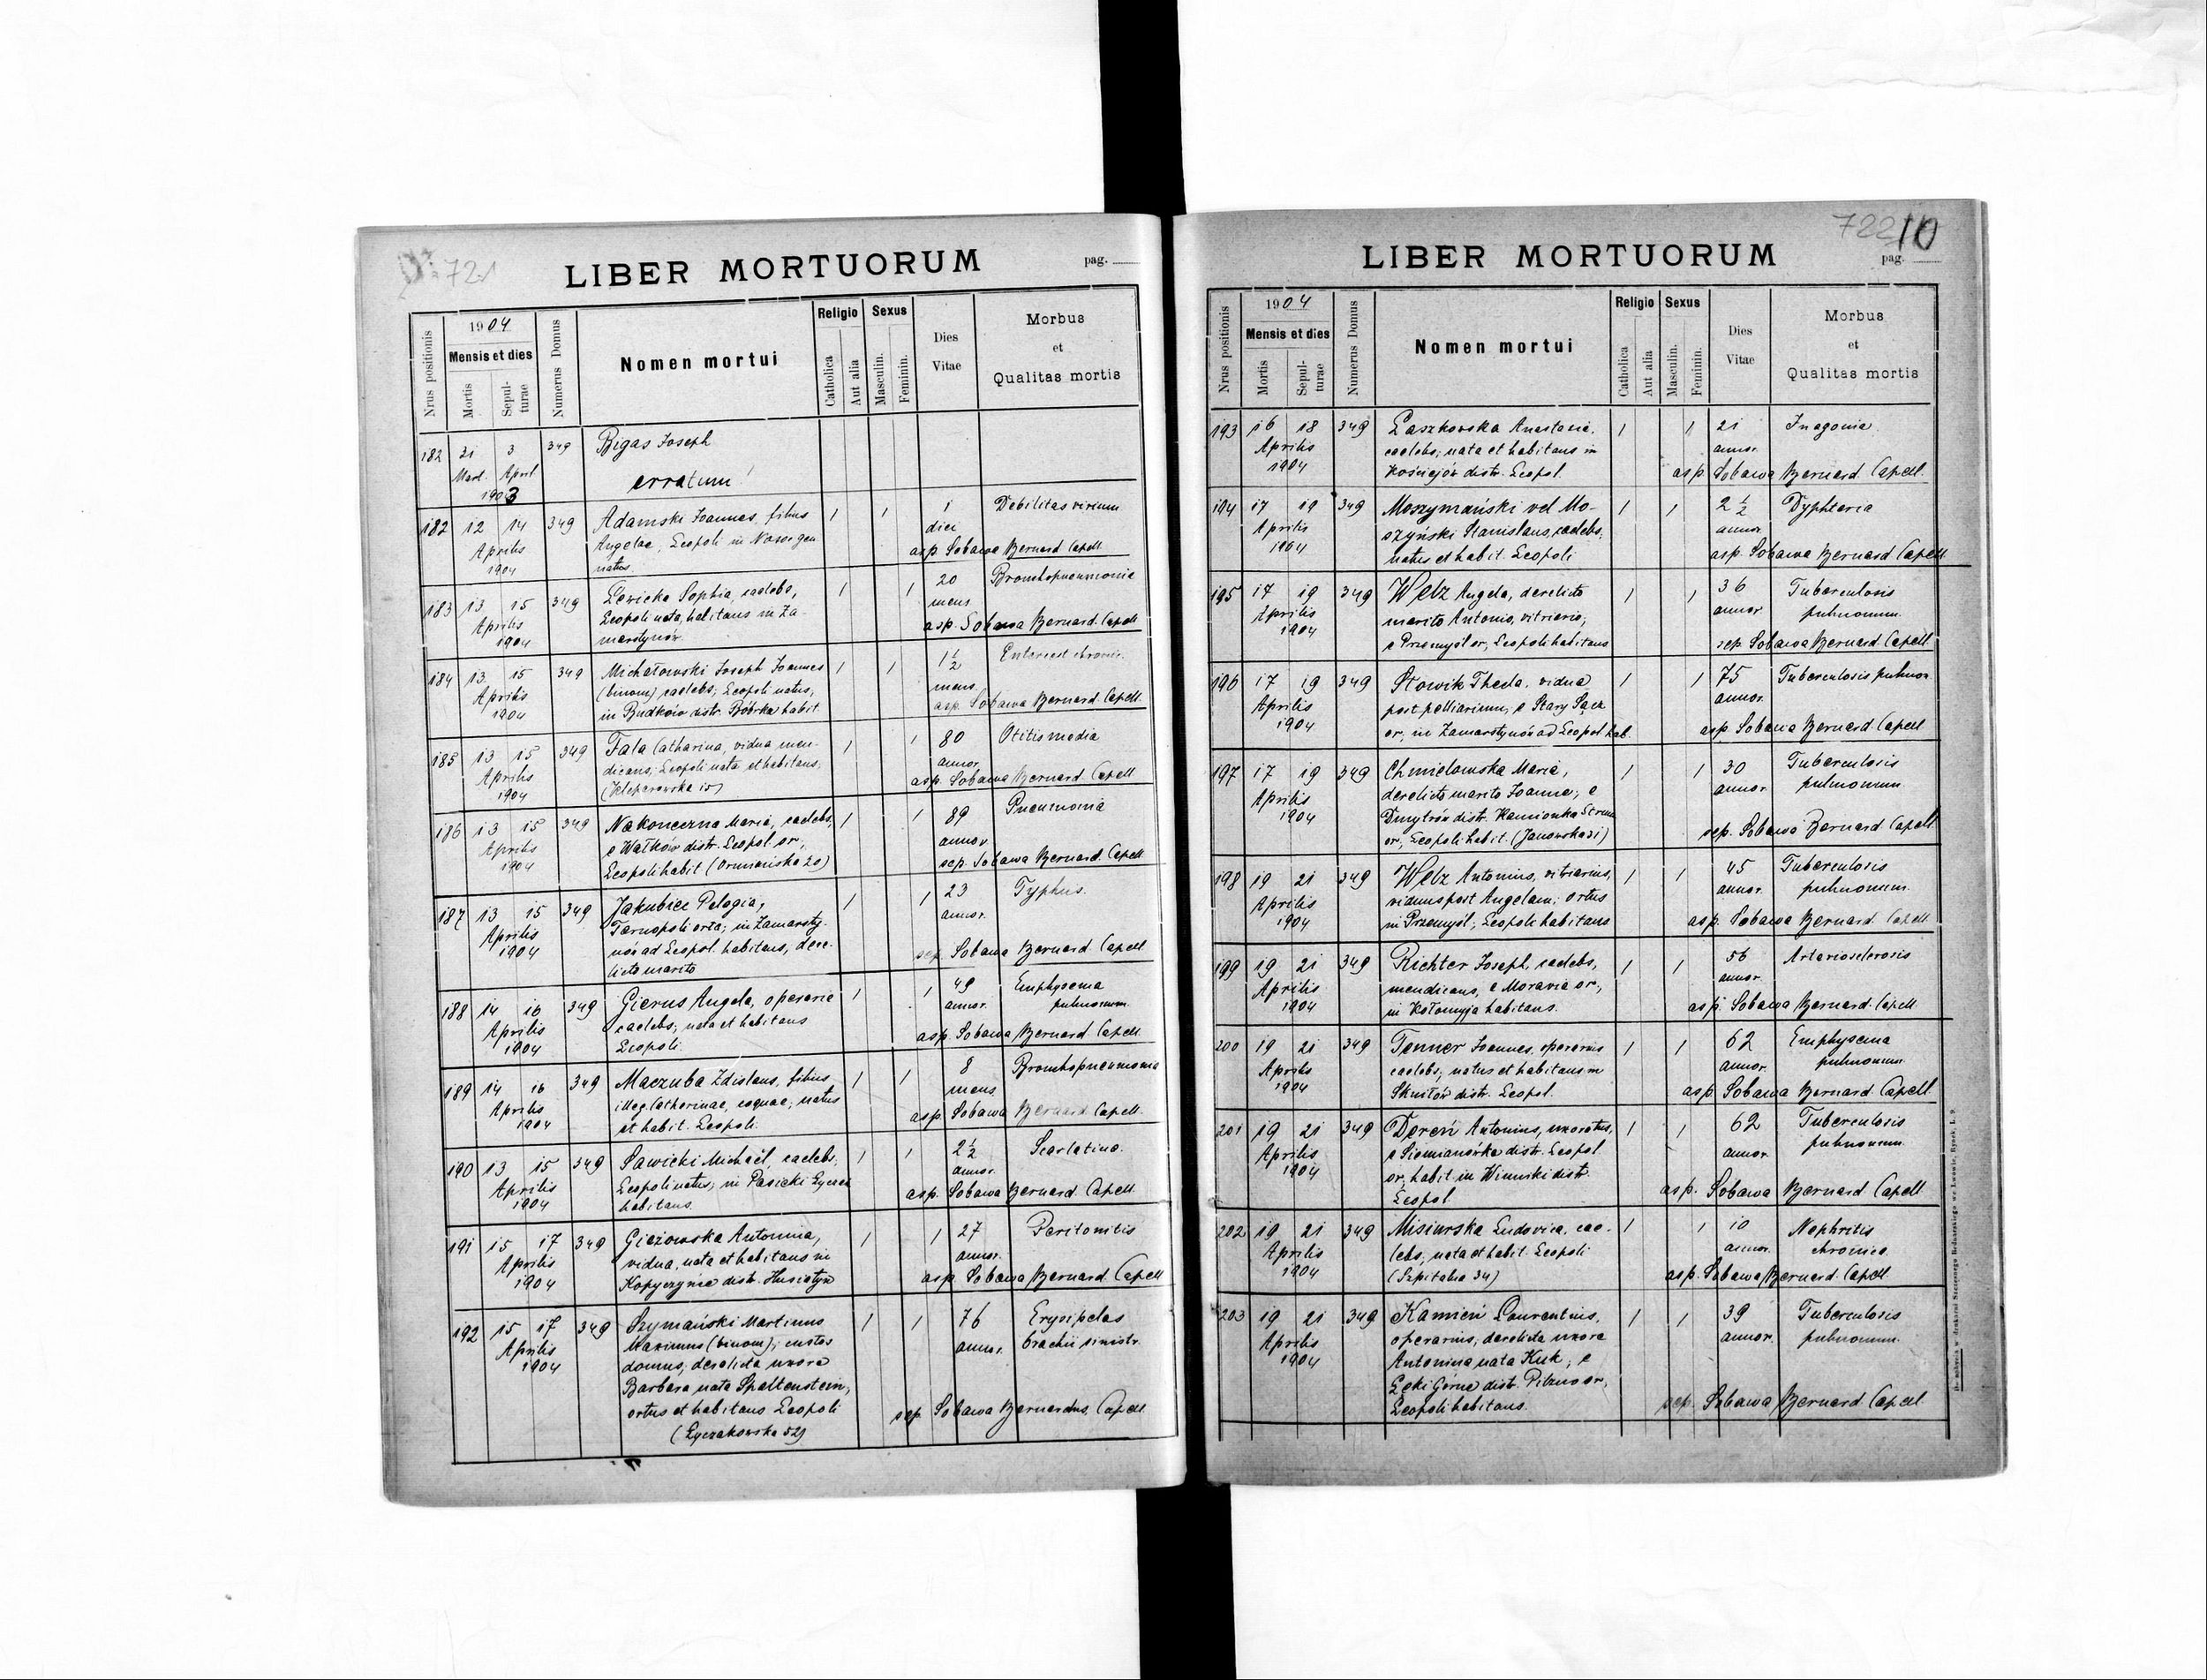 721
LIBER MORTUORUM
pag.
Nrus positionis
1904
Mensis et dies
Mortis
Sepulturae
Numerus Domus
Nomen mortui
Religio
Catholica
Aut alia
Sexus
Masculin.
Feminin.
Dies Vitae
Morbus
et
Qualitas mortis
182 31 3 349 Bigas Joseph
Mart. April
1903 erratum!
182 12 14 349 Adamski Joannes, filius 1 1 1 Debilitas virium
Aprilis Angelae, Leopoli in Nosog gen diei
1904 natus. asp. Sobawa Bernard Capell.
183 13 15 349 Lewicka Sophia, caelebs, 1 1 20 Bronchopneumonia
Aprilis Leopoli nata, habitans in Za- mens.
1904 marstynów. asp. Sobawa Bernard. Capell
184 13 15 349 Michałowski Joseph Joannes 1 1 1½ chronic.
Aprilis (binom) caelebs; Leopoli natus, mens.
1904 in Budków distr. Bóbrka habit asp. Sobawa Bernard. Capell
185 13 15 349 Fala Catharina, vidua men- 1 1 80 Otitis media
Aprilis dicans; Leopoli nata et habitans, annor.
1904 (Kleparowska 15) asp. Sobawa Bernard. Capell
186 13 15 349 Nakoneczna Maria, caelebs, 1 1 89 Pneumonia
Aprilis e Wałków distr. Leopol. or., annor
1904 Leopoli habit (Ormiańska 20) sep. Sobawa Bernard. Capell
187 13 15 349 Jakubiec Pelagia, 1 1 23 Typhus.
Aprilis Tarnopoli orta; in Zamarsty- annor.
1904 nów ad Leopol. habitans, dere- sep. Sobawa Bernard. Capell
licto marito
188 14 16 349 Gierus Angela, operaria 1 1 49 Emphysema
Aprilis caelebs; nata et habitans annor. pulmonum.
1904 Leopoli. asp. Sobawa Bernard Capell
189 14 16 349 Maczuba Zdislaus, filius 1 1 8 Bronchopneumonia
Aprilis illeg. Catharinae, coquae; natus mens.
1904 et habit. Leopoli. asp. Sobawa Bernard Capell.
190 13 15 349 Sawicki Michaël, caelebs; 1 1 2½ Scarlatina.
Aprilis Leopoli natus, in Pasieki Łyczak annor.
1904 habitans. asp. Sobawa Bernard Capell.
191 15 17 349 Giczowska Antonina, 1 1 27 Peritonitis
Aprilis vidua, nata et habitans in annor.
1904 Kopyczyńce distr. Husiatyn asp. Sobawa Bernard. Capell
192 15 17 349 Szymański Martinus 1 1 76 Erysipelas
Aprilis Maximus (binom); custos annor. brachii sinistr.
1904 domus; derelicta uxore
Barbara nata Spaltenstein,
ortus et habitans Leopoli sep. Sobawa Bernardus. Capell
(Łyczakowska 52)
722 10
LIBER MORTUORUM
pag.
Nrus positionis
1904
Mensis et dies
Mortis
Sepulturae
Numerus Domus
Nomen mortui
Religio
Catholica
Aut alia
Sexus
Masculin.
Feminin.
Dies Vitae
Morbus
et
Qualitas mortis
193 16 18 349 Laszkowska Anastasia, 1 1 21 In agonia.
Aprilis caelebs; nata et habitans in annor.
1904 Kościejów distr. Leopol. asp. Sobawa Bernard. Capell.
194 17 19 349 Moszymański vel Mo- 1 1 2½ Dyphteria
Aprilis szyński Stanislaus, caelebs, annor.
1904 natus et habit. Leopoli asp. Sobawa Bernard Capell
195 17 19 349 Welz Angela, derelicto 1 1 36 Tuberculosis
Aprilis marito Antonio, vitriario, annor pulmonum.
1904 e Przemyśl or., Leopoli habitans sep. Sobawa Bernard. Capell
196 17 19 349 Słowik Thecla, vidua 1 1 75 Tuberculosis pulmon.
Aprilis post pelliarium, e Stary Sącz annor.
1904 or., in Zamarstynów ad Leopol hab. asp. Sobawa Bernard. Capell
197 17 19 349 Chmielowska Maria, 1 1 30 Tuberculosis
Aprilis derelicto marito Joanne; e annor. pulmonum
1904 Dmytrów distr. Kamionka Strum
or., Leopoli habit. (Janowska 31) sep. Sobawa Bernard Capell.
198 19 21 349 Welz Antonius, vitriarius, 1 1 45 Tuberculosis
Aprilis viduus post Angelam; ortus annor. pulmonum.
1904 in Przemyśl, Leopoli habitans asp. Sobawa Bernard. Capell
199 19 21 349 Richter Joseph, caelebs, 1 1 56 Arteriosclerosis
Aprilis mendicans, e Moravia or., annor.
1904 in Kołomyja habitans. asp. Sobawa Bernard. Capell
200 19 21 349 Tenner Joannes, operarius 1 1 62 Emphysema
Aprilis caelebs; natus et habitans in annor. pulmonum.
1904 Skniłów distr. Leopol. asp. Sobawa Bernard Capell.
201 19 21 349 Dereń Antonius, uxoratus, 1 1 62 Tuberculosis
Aprilis e Siemianówka distr. Leopol annor. pulmonum.
1904 or., habit in Winniki distr.
Leopol asp. Sobawa Bernard Capell
202 19 21 349 Misiurska Ludovica, cae- 1 1 10 Nephritis
Aprilis lebs; nata et habit. Leopoli annor. chronica.
1904 (Szpitalna 34) asp. Sobawa Bernard. Capell
203 19 21 349 Kamień Laurentius, 1 1 39 Tuberculosis
Aprilis operarius, derelicta uxore annor. pulmonum.
1904 Antonina nata Kuk; e
Łęki Górne distr. Pilzno or.,
Leopoli habitans. sep. Sobawa Bernard Capell
Do nabycia w drukarni Szczęsnego Bednarskiego we Lwowie, Rynek, L. 9.